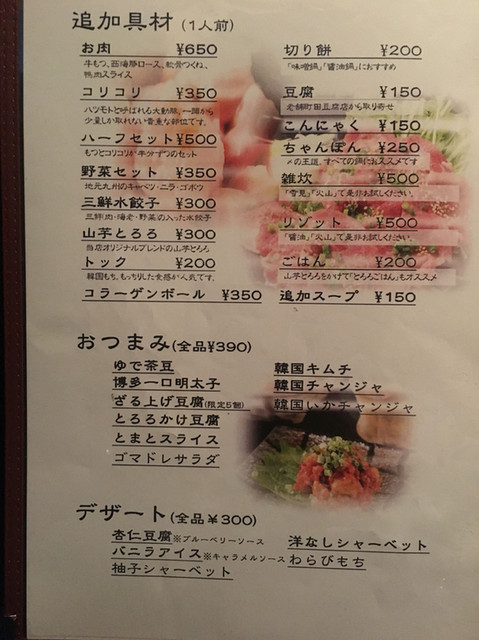 追加具材(1人前)
お肉 ¥650
牛もつ、芸海豚ロース、軟骨つくね、
鴨肉スライス
コリコリ ¥500
ハツモトと呼ばれる大動脈。一頭から
少量しか取れない貴重な部位です。
ハーフセット¥500
もつとコリコリが半分ずつのセット
野菜セット ¥350
地元九州のキャベツ・ニラ・ゴボウ
三鮮水餃子 ¥300
三鮮(肉・海老・野菜の入った水餃子
山芋とろろ ¥300
当店オリジナルブレンドの山芋とろろ
トック ¥200
韓国もち。もっちりした食感が人気です。
コラーゲンボール ¥350
切り餅 ¥200
「味噌鍋」「醤油鍋」におすすめ
豆腐 ¥150
老舗町田豆腐店から取り寄せ
こんにゃく ¥150
ちゃんぽん ¥250
〆の王道。すべての鍋におススメです
雑炊 ¥500
「雪見」「火山」で是非お試しください。
リゾット ¥500
「醤油」「火山」で是非お試しください。
ごはん ¥200
山芋とろろをかけて「とろろごはん」もオススメ
追加スープ ¥150
おつまみ(全品¥390)
ゆで茶豆
博多一口明太子
ざる上げ豆腐(限定5個)
とろろかけ豆腐
とまとスライス
ゴマドレサラダ
韓国キムチ
韓国チャンジャ
韓国いかチャンジャ
デザート(全品¥300)
杏仁豆腐※ブルーベリーソース
バニラアイス※キャラメルソース
柚子シャーベット
洋なしシャーベット
わらびもち